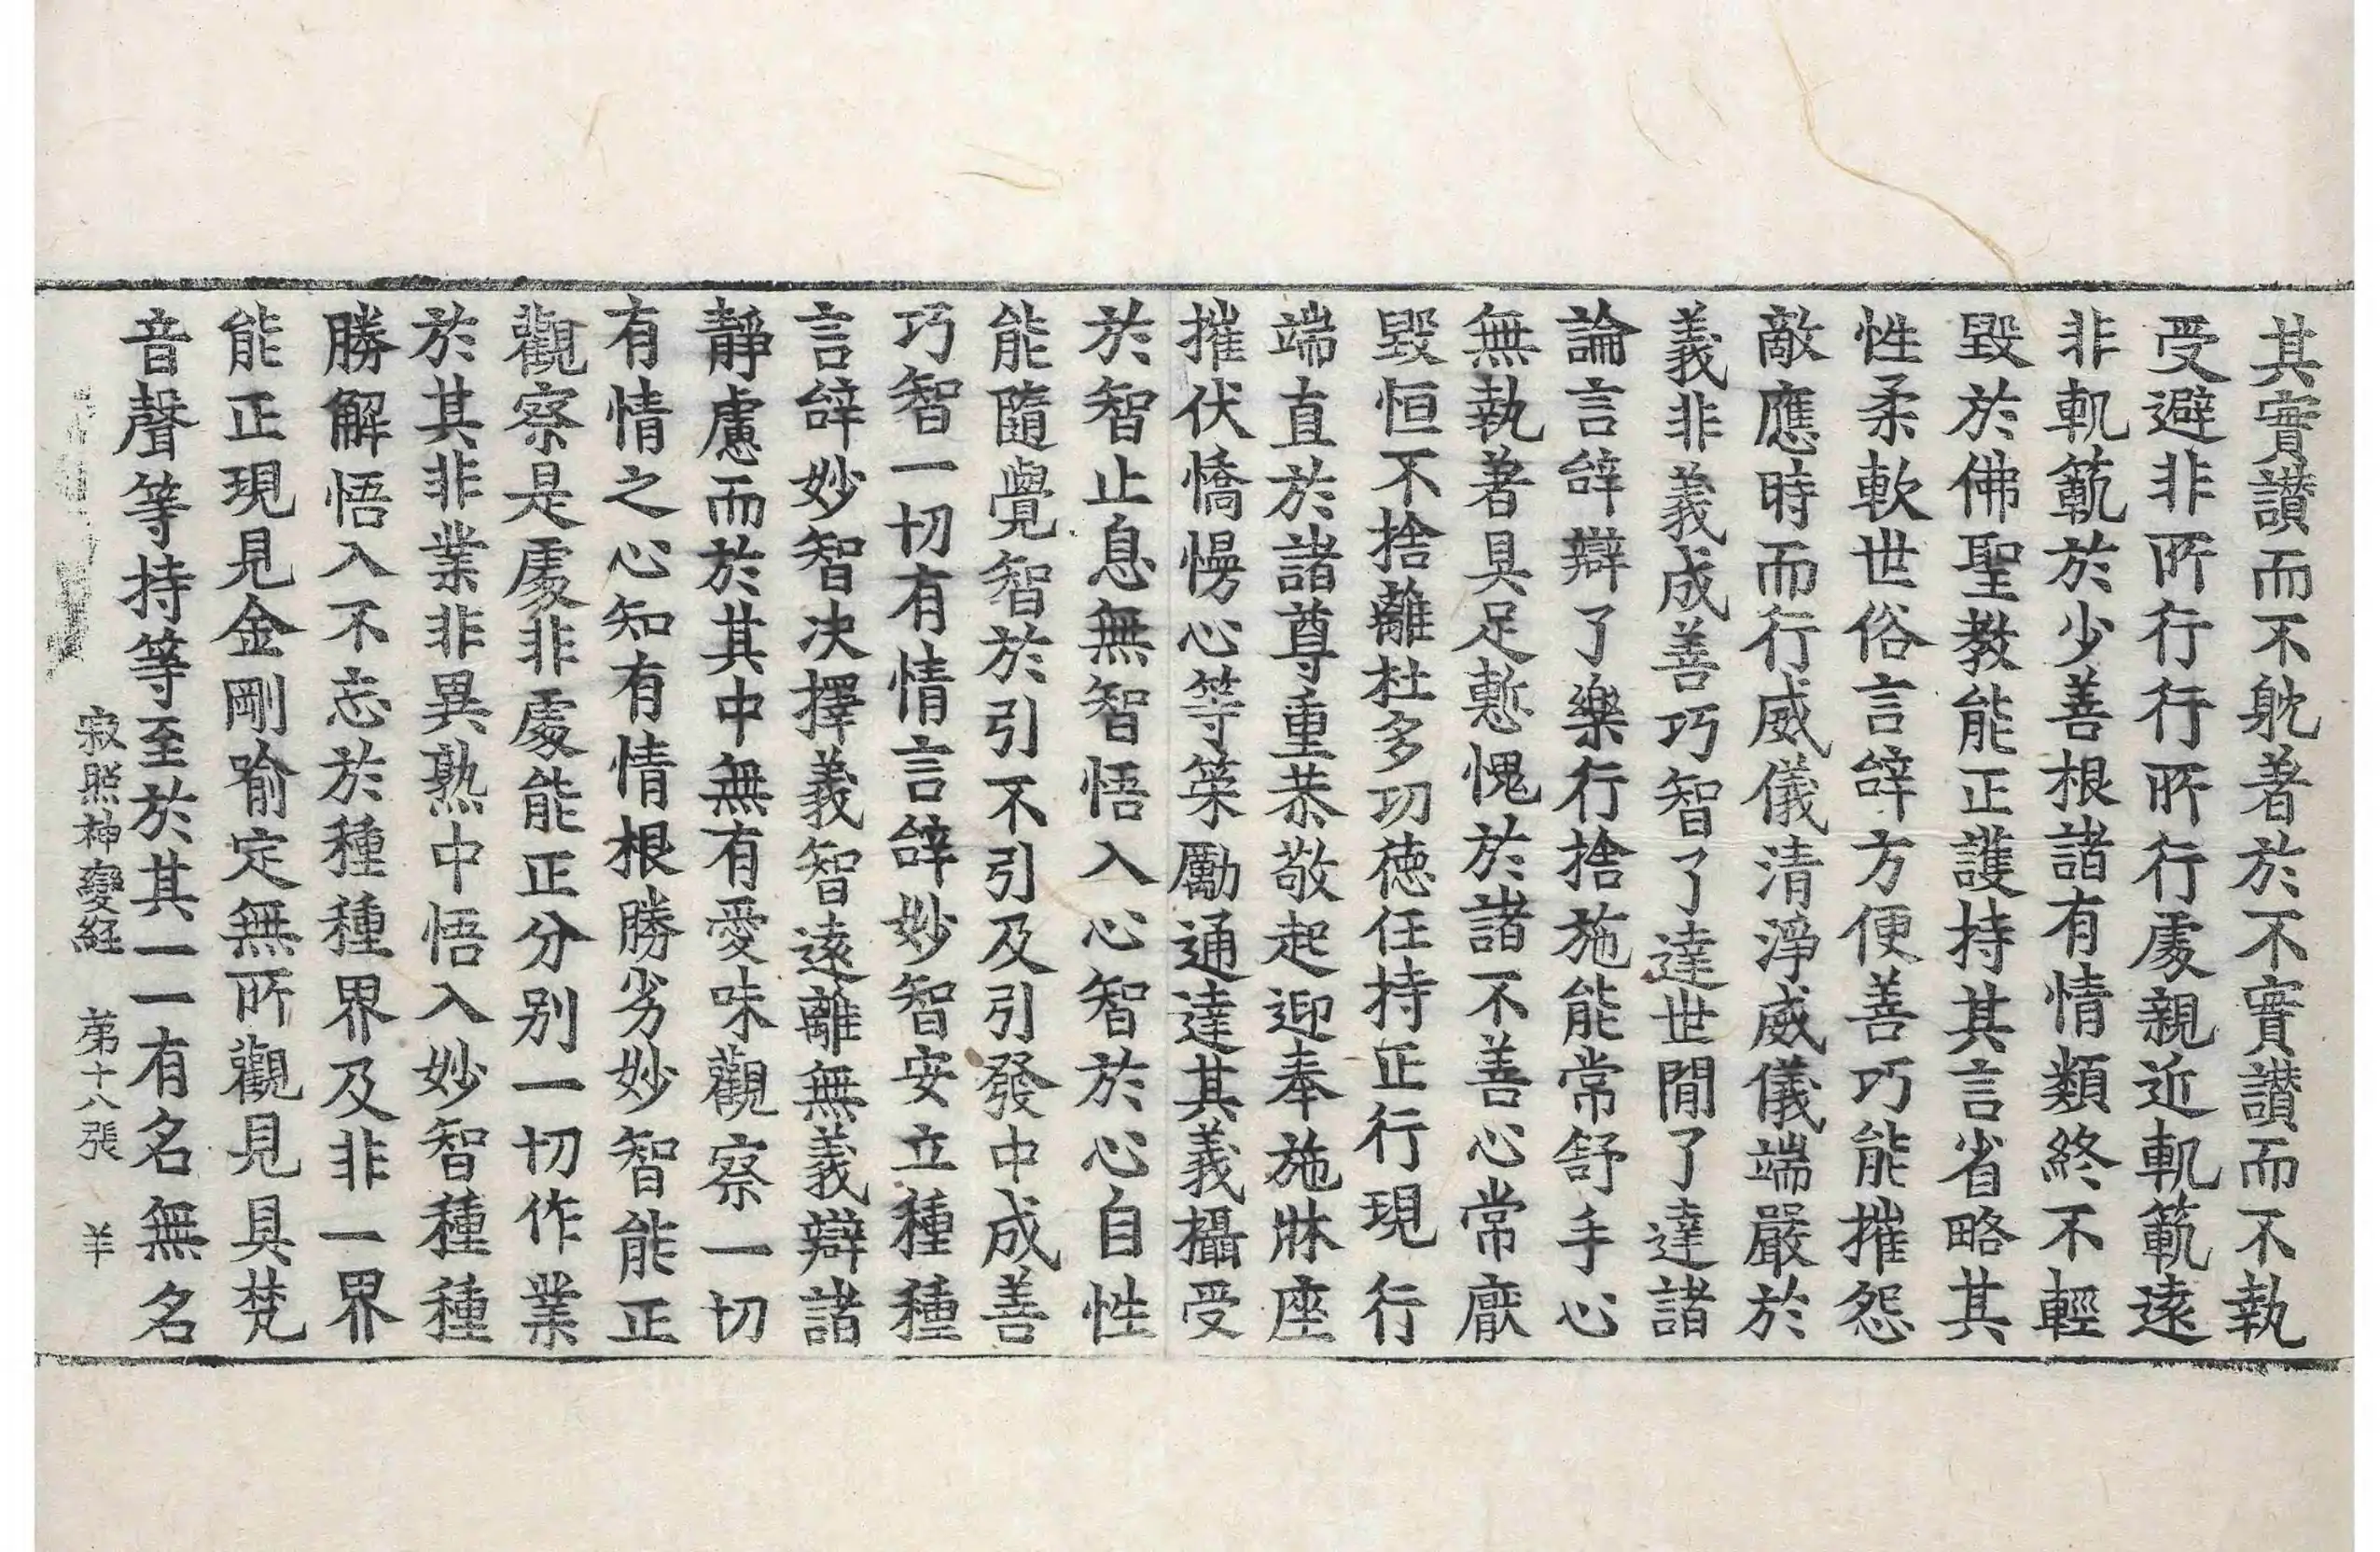 其實讃而不躭著於不實讃而不執
受避非所行行所行處親近軌範遠
非軌範於少善根諸有情類終不輕
毀於佛聖教能正護持其言省略其
性柔軟世俗言辝方便善巧能摧怨
敵應時而行威儀清淨威儀端嚴於
義非義成善巧智了達世間了達諸
論言辝辯了樂行捨施能常舒手心
無執著具足慙愧於諸不善心常厭
毀恒不捨離杜多功德任持正行現行
端直於諸尊重恭敬起迎奉施牀座
摧伏憍慢心等策勵通達其義攝受
於智止息無智悟入心智於心自性
能隨覺智於引不引及引發中成善
巧智一切有情言辝妙智安立種種
言辝妙智决擇義智遠離無義辯諸
靜慮而於其中無有愛味觀察一切
有情之心知有情根勝劣妙智能正
觀察是處非處能正分别一切作業
於其非業非異熟中悟入妙智種種
勝解悟入不忘於種種界及非一界
能正現見金剛喻定無所觀見具梵
音聲等持等至於其一一有名無名
寂照神變經 苐十八張 羊